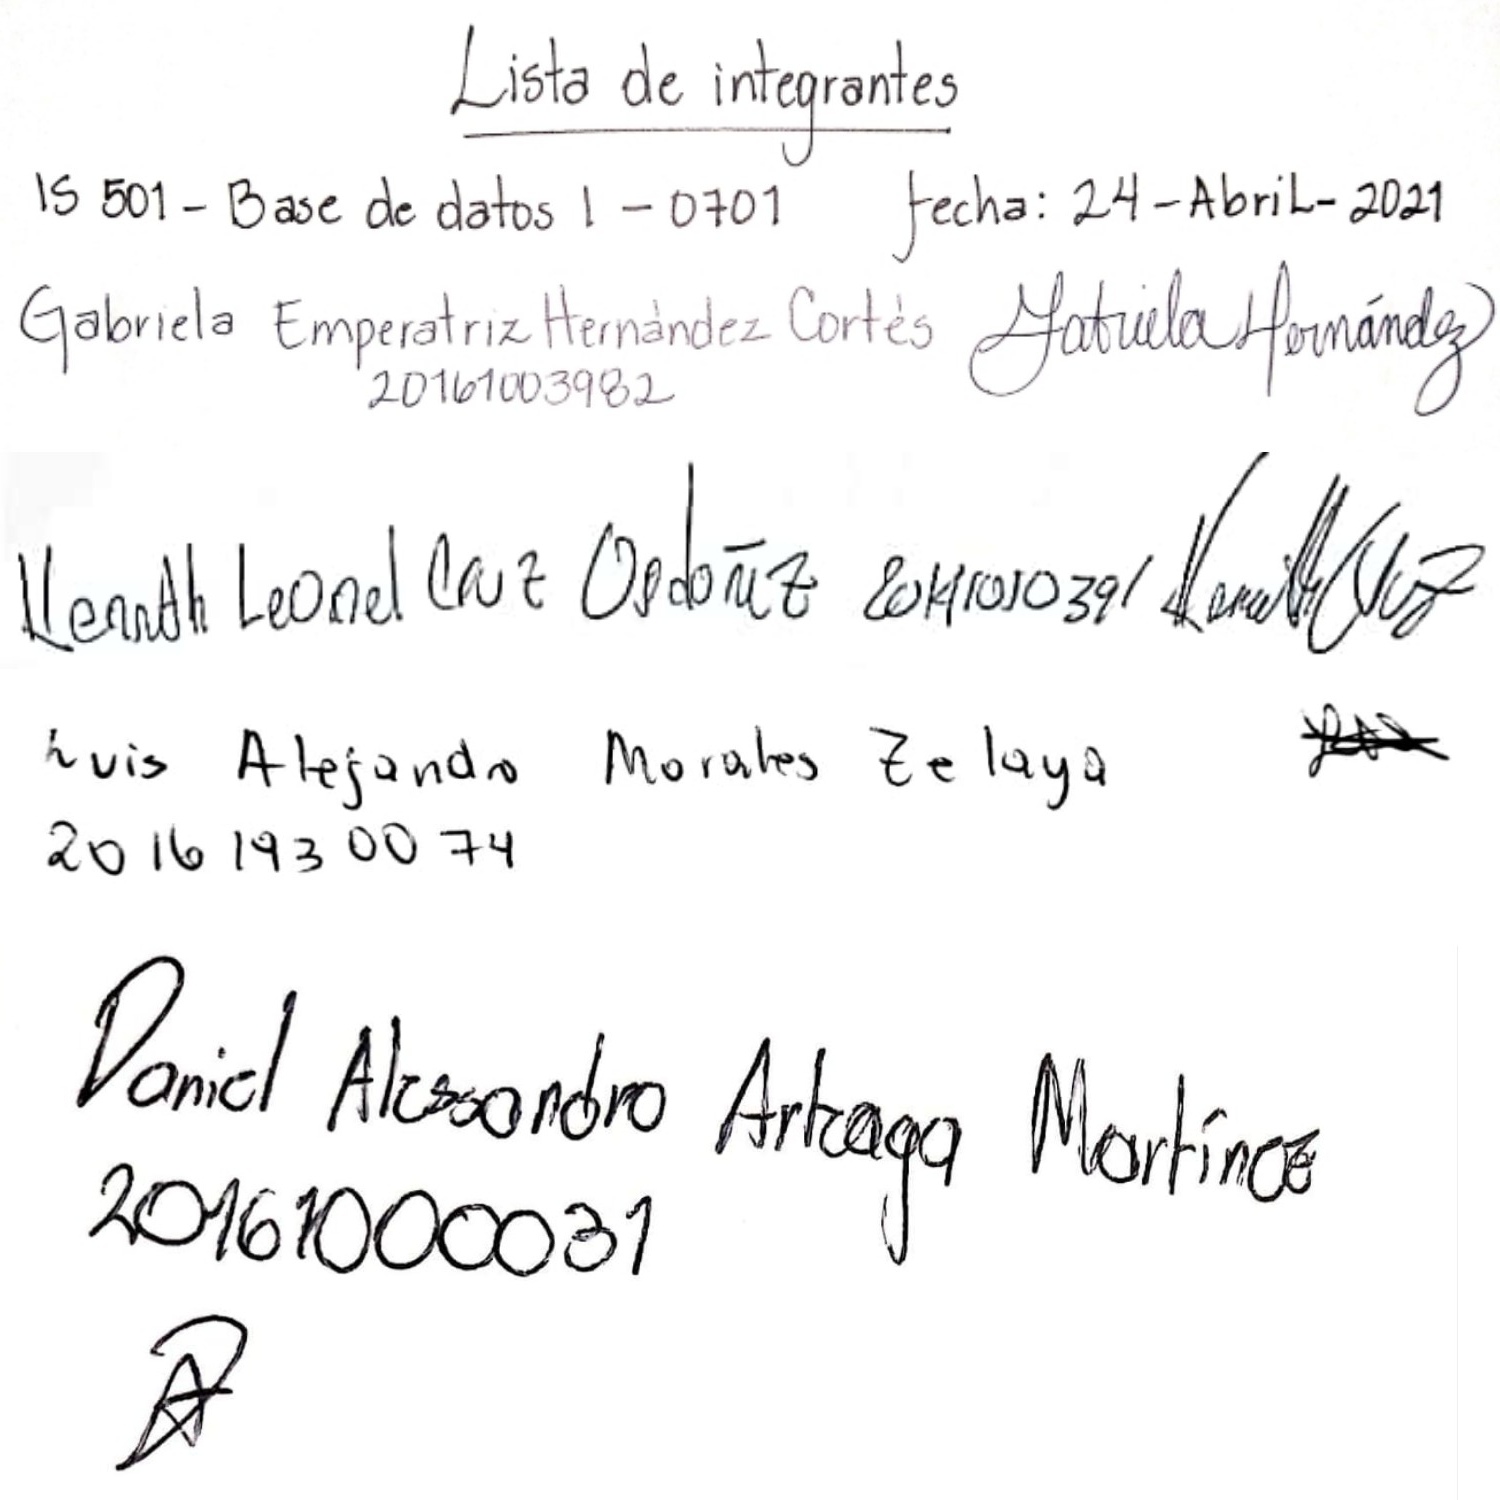 Lista de integrantes
IS 501 - Base de datos 1 - 0701 fecha: 24-Abril-2021
Gabriela Emperatriz Hernández Cortés Gabriela Hernández
20161003982
Kenneth Leonel Cruz Ordoñez 20141010391 Kenneth Cruz
Luis Alejandro Morales Zelaya
20161930074
Daniel Alessandro Arteaga Martínez
20161000031